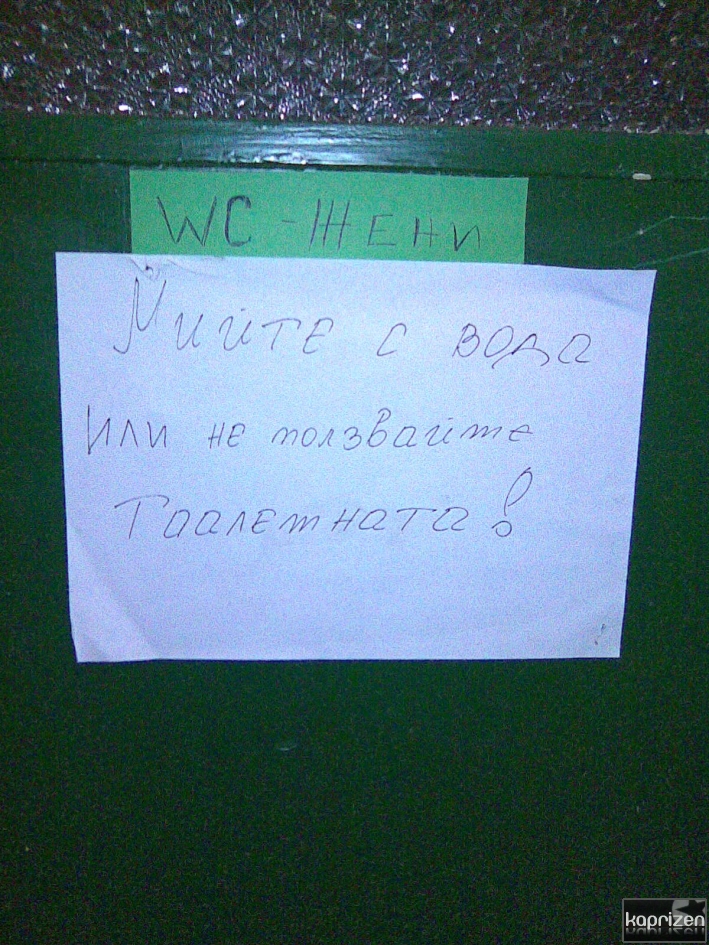 WC - Жени
Мийте с вода
или не ползвайте
Тоалетната!
kaprizen